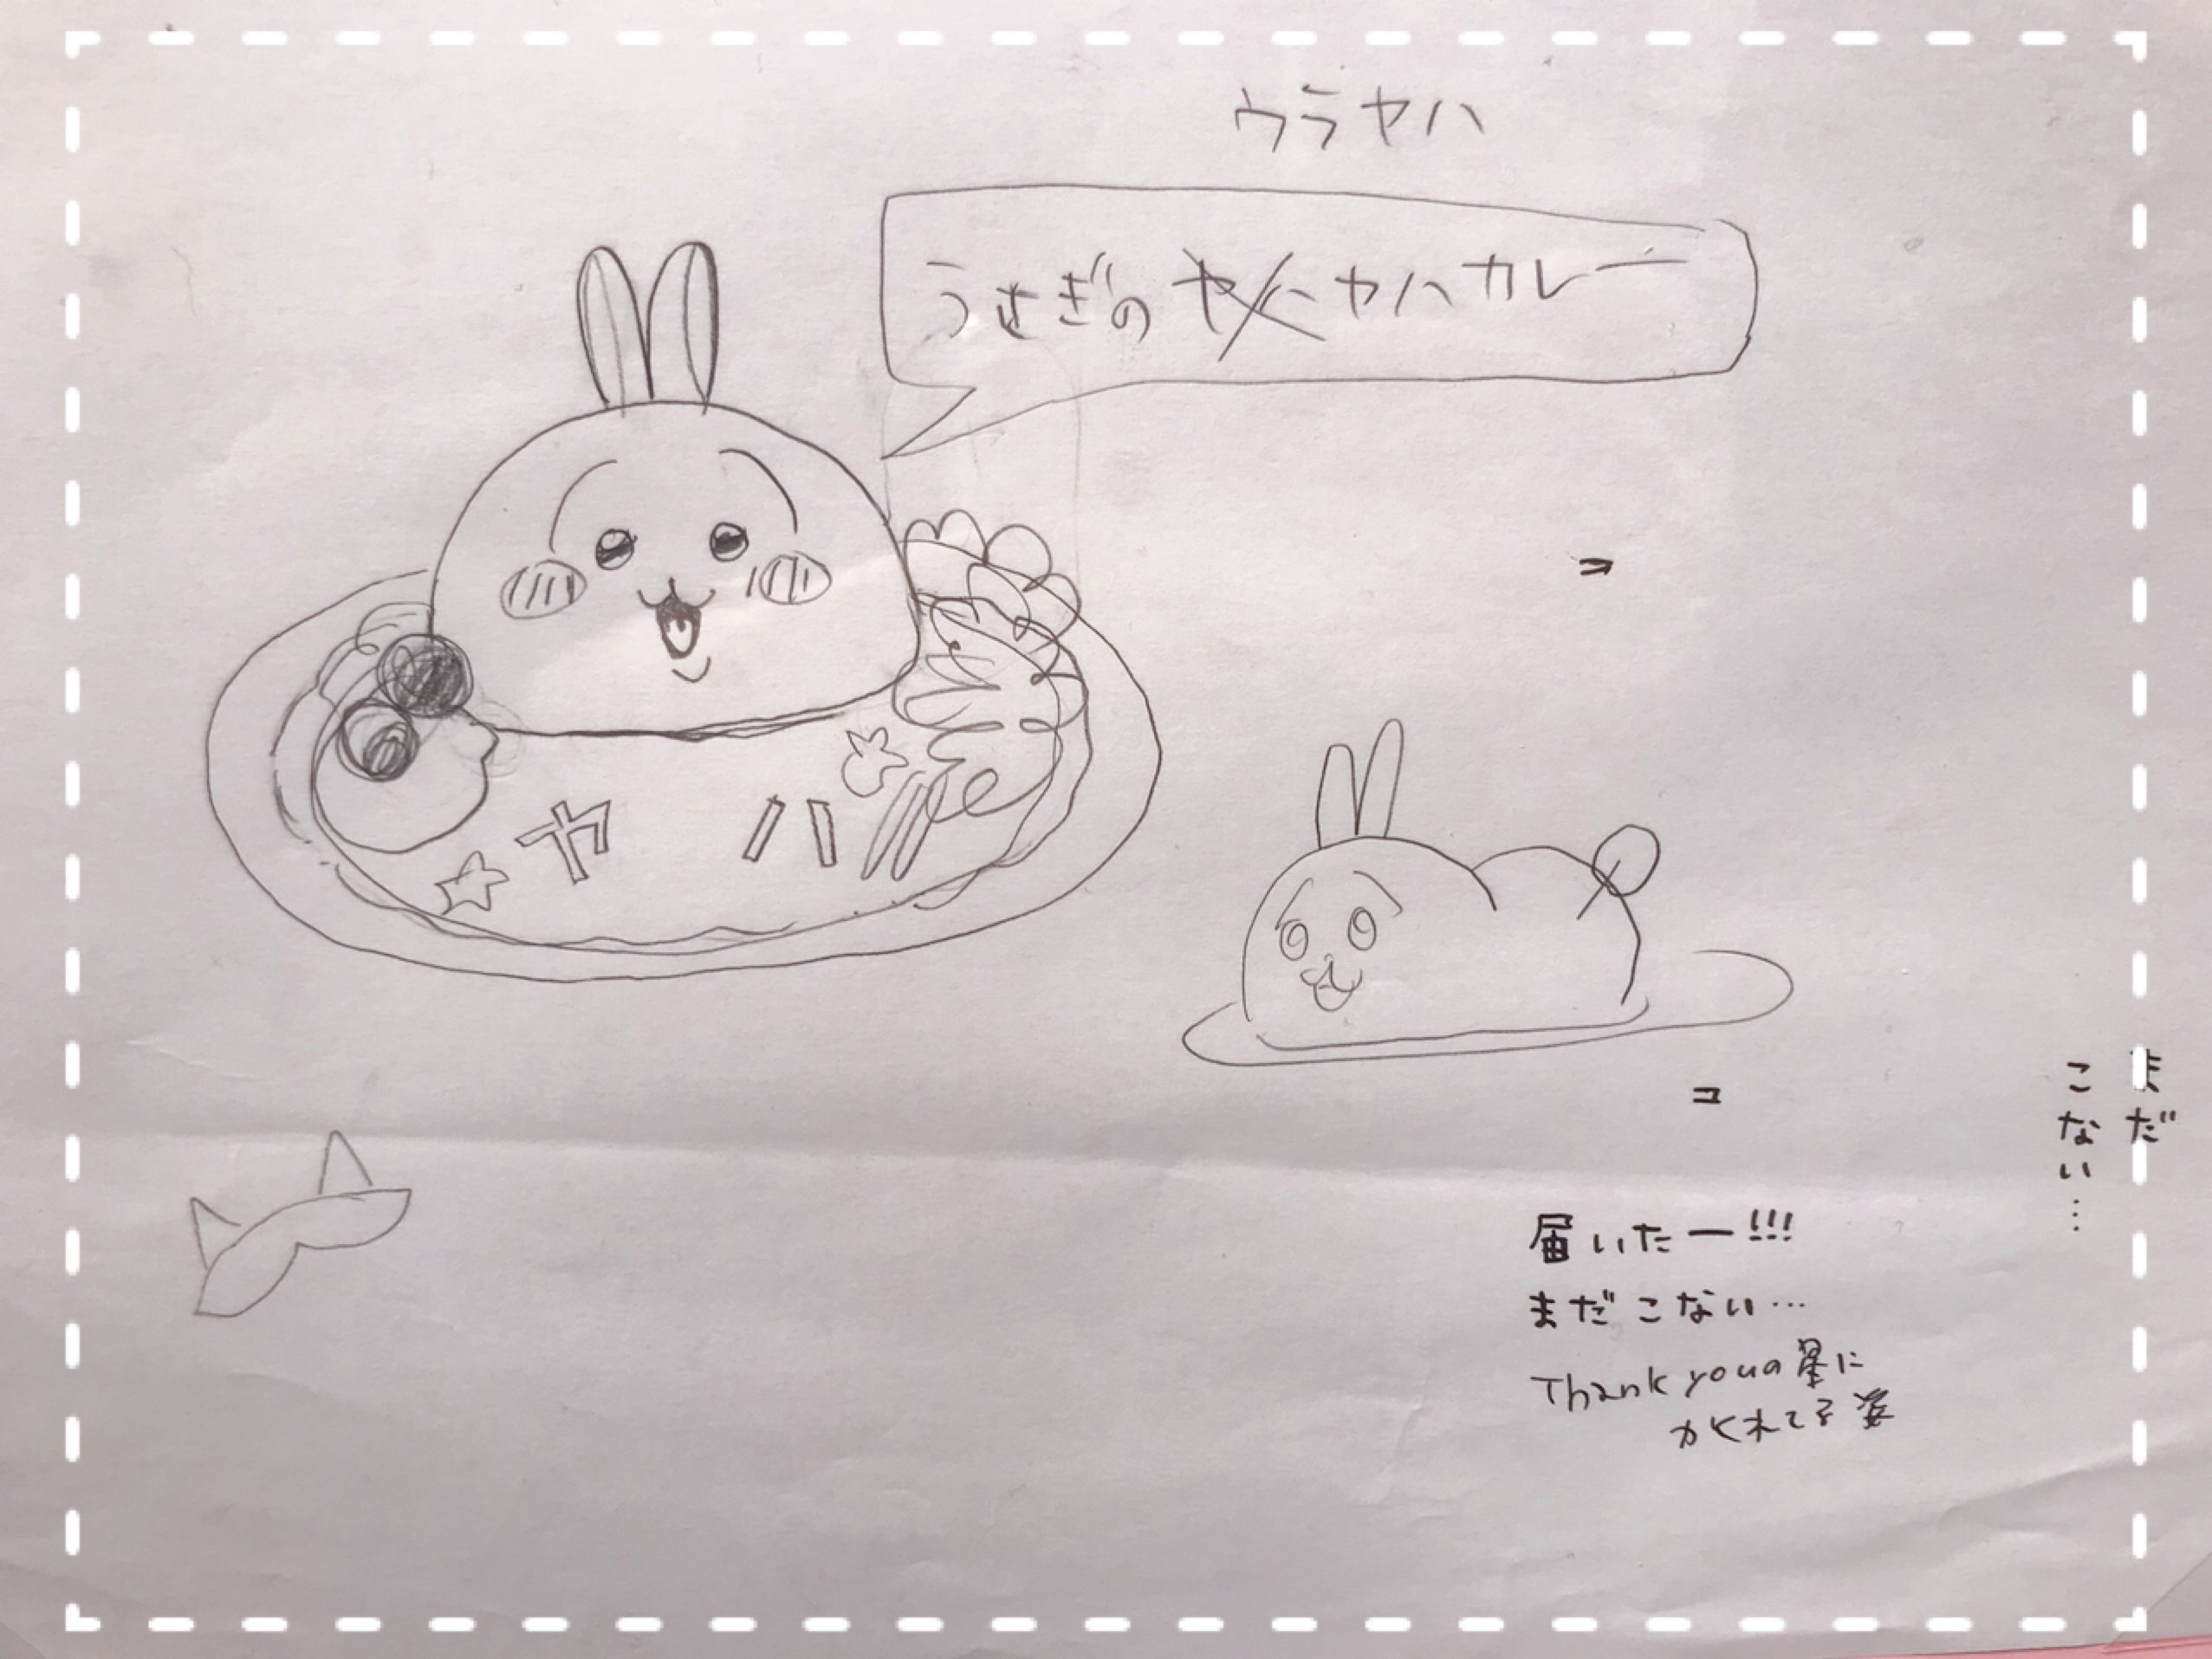 ウラヤハ
うさぎの ヤハヤハカレー
ヤ ハ
コ
コ
まだ
こない…
届いたー!!!
まだこない…
Thank youの星に
かくれてる姿